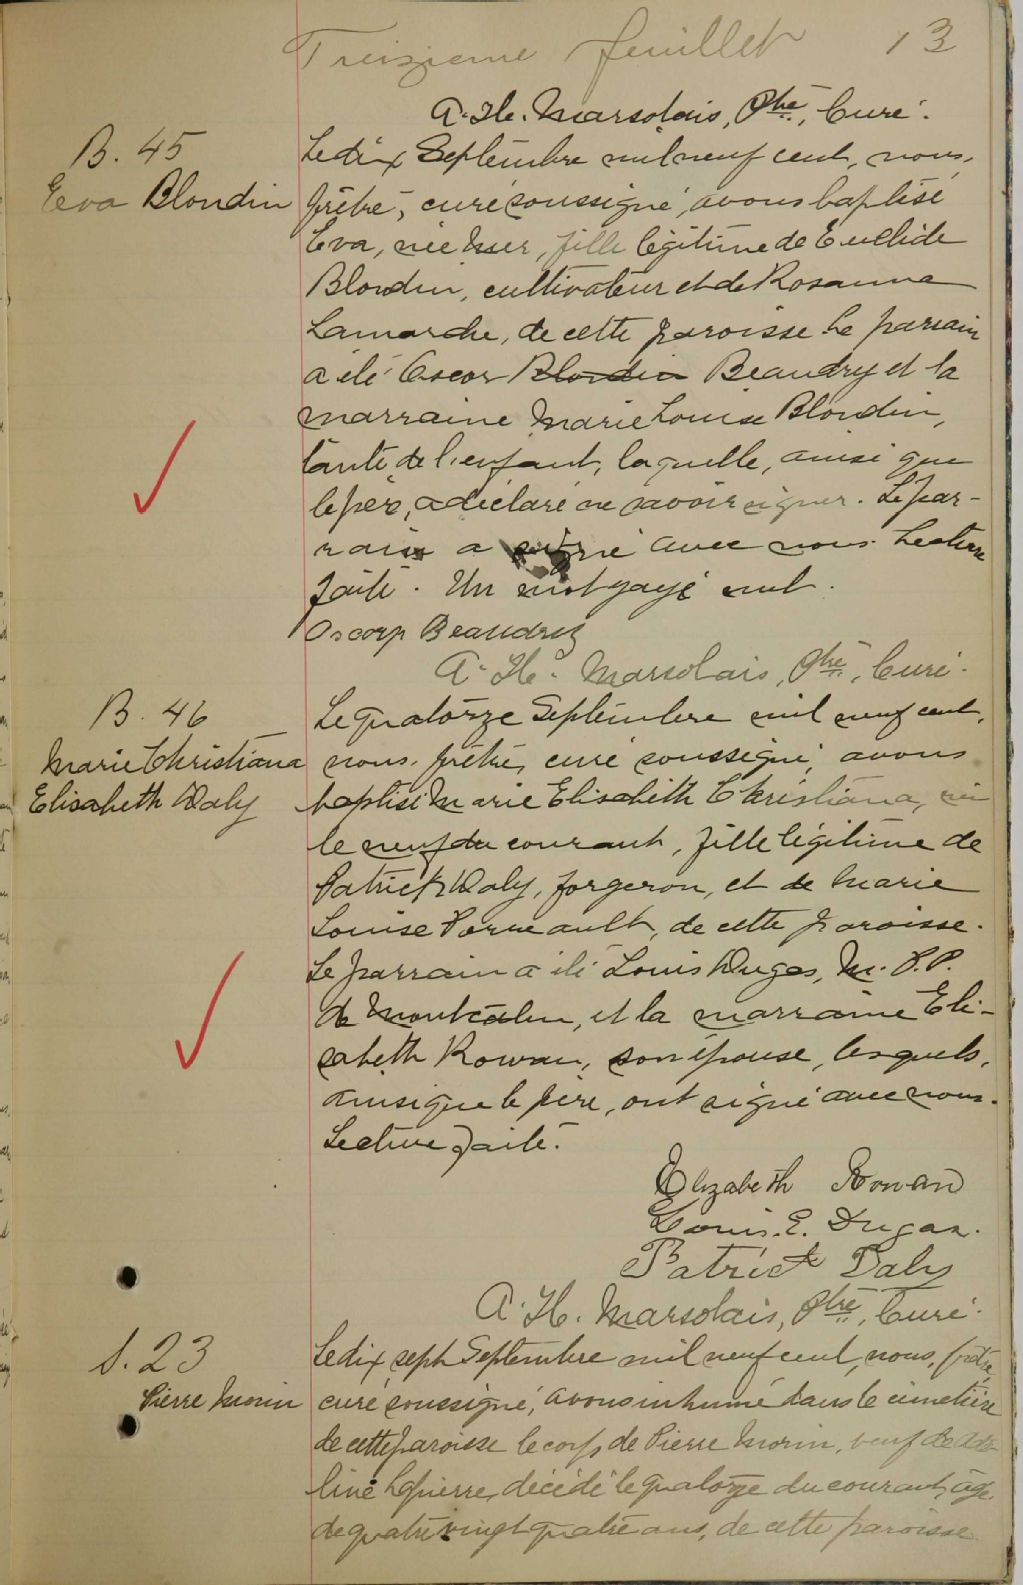 Treizieme feuillet 13
A. H. Marsolais, Ptre, Curé.
B. 45
Eva Blondin
Le dix Septembre mil neuf cent, nous,
prêtre, curé soussigné, avons baptisé
Eva, née hier, fille légitime de Euclide
Blondin, cultivateur et de Rosanna
Lamarche, de cette paroisse Le parrain
a été Oscar Blondin Beaudry et la
marraine Marie Louise Blondin,
tante de l'enfant, laquelle, ainsi que
le père, a déclaré ne savoir signer. Le par-
rain a signé avec nous. Lecture
faite. Un mot rayé nul.
Oscar Beaudry
A. H. Marsolais, Ptre, Curé.
B. 46
Marie Christiana
Elisabeth Daly
Le quatorze Septembre mil neuf cent,
nous, prêtre, curé soussigné, avons
baptisé Marie Elisabeth Christiana, née
le neuf du courant, fille légitime de
Patrick Daly, forgeron, et de Marie
Louise Perreault, de cette paroisse.
Le parrain a été Louis Dugas, M. P. P.
de Montcalm, et la marraine Eli-
sabeth Rowan, son épouse, lesquels,
ainsi que le père, ont signé avec nous.
Lecture faite.
Elizabeth Rowan
Louis. E. Dugas.
Patrick Daly
A. H. Marsolais, Ptre, Curé.
S. 23
Pierre Morin
Le dix sept Septembre mil neuf cent, nous, prêtre,
curé soussigné, avons inhumé dans le cimetière
de cette paroisse le corps de Pierre Morin, veuf de Ade-
line Lapierre, décédé le quatorze du courant, âgé
de quatre vingt quatre ans, de cette paroisse